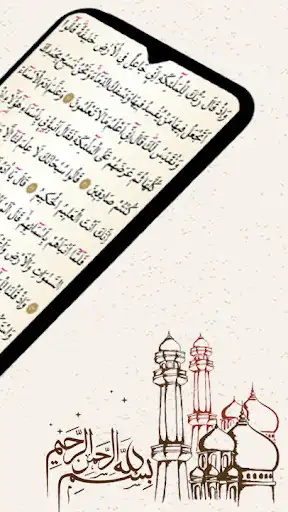 وَإِذْ قَالَ رَبُّكَ لِلْمَلَٰٓئِكَةِ إِنِّى جَاعِلٌ فِى ٱلْأَرْضِ خَلِيفَةً قَالُوٓا۟
أَتَجْعَلُ فِيهَا مَن يُفْسِدُ فِيهَا وَيَسْفِكُ ٱلدِّمَآءَ وَنَحْنُ نُسَبِّحُ بِحَمْدِكَ
وَنُقَدِّسُ لَكَ قَالَ إِنِّىٓ أَعْلَمُ مَا لَا تَعْلَمُونَ وَعَلَّمَ ءَادَمَ ٱلْأَسْمَآءَ
كُلَّهَا ثُمَّ عَرَضَهُمْ عَلَى ٱلْمَلَٰٓئِكَةِ فَقَالَ أَنۢبِـُٔونِى بِأَسْمَآءِ هَٰٓؤُلَآءِ
كُنتُمْ صَٰدِقِينَ قَالُوا۟ سُبْحَٰنَكَ لَا عِلْمَ لَنَآ إِلَّا
إِنَّكَ أَنتَ ٱلْعَلِيمُ ٱلْحَكِيمُ قَالَ
فَلَمَّآ أَنۢبَأَهُم بِأَسْمَآئِهِمْ قَالَ
ٱلسَّمَٰوَٰتِ وَٱلْأَرْضِ
وَإِذْ قُلْنَا
بِسْمِ اللهِ الرَّحْمٰنِ الرَّحِيمِ